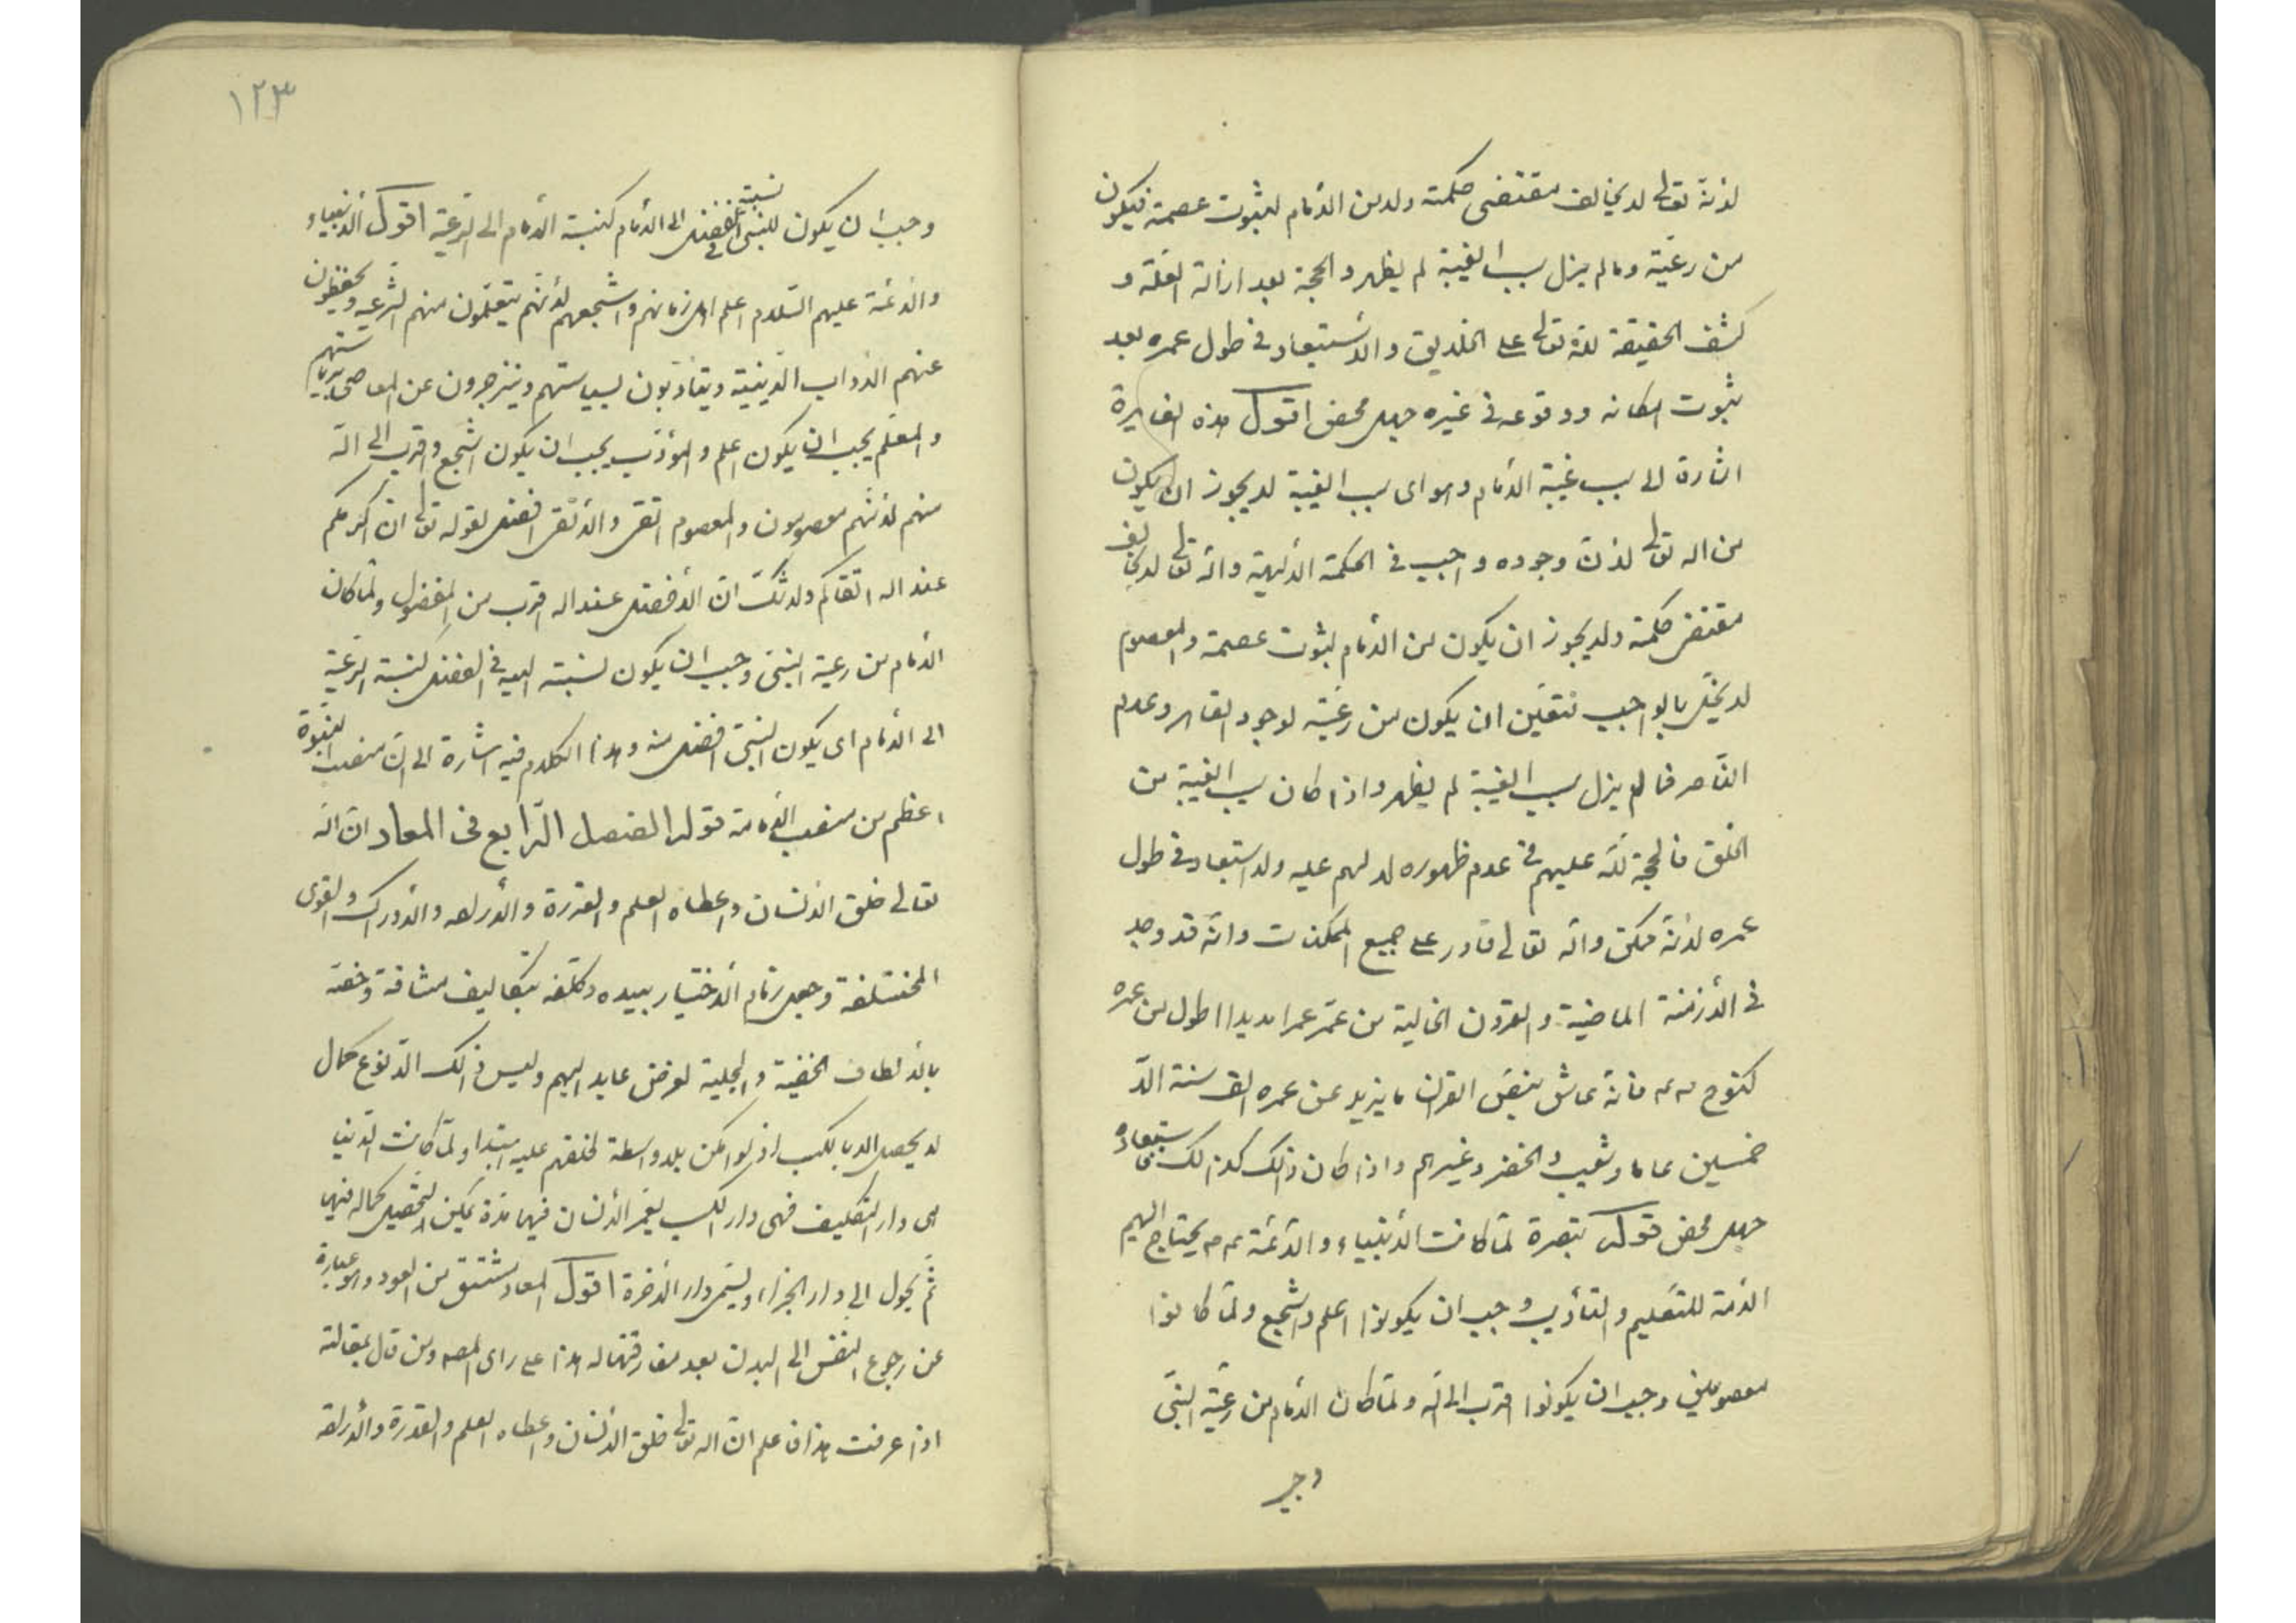 لانه تعالى لا يخالف مقتضى حكمته ولا من الامام لثبوت عصمة فيكون
من رعيّة ومالم يزل سبب الغيبة لم يظهر والحجة بعد ازالة العلة و
كشف الحقيقة لله تعالى على الخلايق والاستبعاد في طول عمره بعد
ثبوت امكانه ووقوعه في غيره جهل محض اقول هذه
اشارة الى سبب غيبة الامام وهو اى سبب الغيبة لا يجوز ان يكون
من اله تعالى لان وجوده واجب في الحكمة الالهية واله تعالى لا يخالف
مقتضى حكمته ولا يجوز ان يكون من الامام لثبوت عصمة والمعصوم
لا يخلّ بالواجب فتعيّن ان يكون من رعيّته لوجود القاهر وعدم
النّاصر فما لم يزل سبب الغيبة لم يظهر واذا كان سبب الغيبة من
الخلق فالحجة لله عليهم في عدم ظهوره لا لهم عليه ولا استبعاد في طول
عمره لانّه ممكن واله تعالى قادر على جميع الممكنات وانّه قد وجد
في الأزمنة الماضية والقرون الخالية من عمّر عمرا مديدا اطول من عمره
كنوح فانّه عاش بنصّ القران ما يزيد عن عمره الف سنة الّا
خمسين عاما وشعيب والخضر وغيرهم واذا كان ذلك كذلك استبعاده
جهل محض قوله تبصرة لمّا كانت الأنبياء والأئمّة يحتاج اليهم
الأمة للتعليم والتأديب وجب ان يكونوا اعلم واشجع ولمّا كانوا
معصومين وجب ان يكونوا اقرب الى الله ولمّا كان الأمام من رعيّة النبّى
وجب
١٢٣
وجب ان يكون للنبى نسبة في الفضل الى الأمام كنسبة الأمام الى الرّعيّة اقول الأنبياء
والأئمّة عليهم السّلام اعلم اهل زمانهم واشجعهم لأنّهم يتعلّمون منهم الشّرعيه ويحفظون
عنهم الاداب الدّينيّة ويتأدّبون بسياستهم وينزجرون عن المعاصى
والمعلّم يجب ان يكون اعلم والمؤدّب يجب ان يكون اشجع واقرب الى الله
منهم لأنّهم معصومون والمعصوم اتقى والأتقى افضل لقوله تعالى انّ اكرمكم
عند اله اتقاكم ولا شكّ انّ الأفضل عند اله اقرب من المفضول ولمّا كان
الأمام من رعية النبىّ وجب ان يكون نسبته اليه في الفضل كنسبة الرعيّة
الى الأمام اى يكون النبىّ افضل منه وهذا الكلام فيه اشارة الى انّ منصب النبوّة
اعظم من منصب الأمامة قوله الفصل الرّابع فى المعاد انّ الله
تعالى خلق الانسان واعطاه العلم والقدرة والأرادة والأدراك والقوى
المختلفة وجعل زمام الأختيار بيده وكلّفه بتكاليف مشاقة وخصّه
بالألطاف الخفيّة والجلية لغرض عايد اليهم وليس ذالك الّا نوع كمال
لا يحصل الا بالكسب اذ لو امكن بلا واسطة لخلقهم عليه ابتداء ولمّا كانت الدّنيا
هى دار التكليف فهى دار الكسب يعمّر الأنسان فيها مدّة يمكن تحصيل كماله فيها
ثمّ يحول الى دار الجزاء ويسمّى دار الأخرة اقول المعاد مشتق من العود وهو عبارة
عن رجوع النفس الى البدن بعد مفارقتها له هذا على راى المصه ومن قال بمقالته
اذا عرفت هذا فاعلم انّ اله تعالى خلق الأنسان واعطاه العلم والقدرة والأرادة